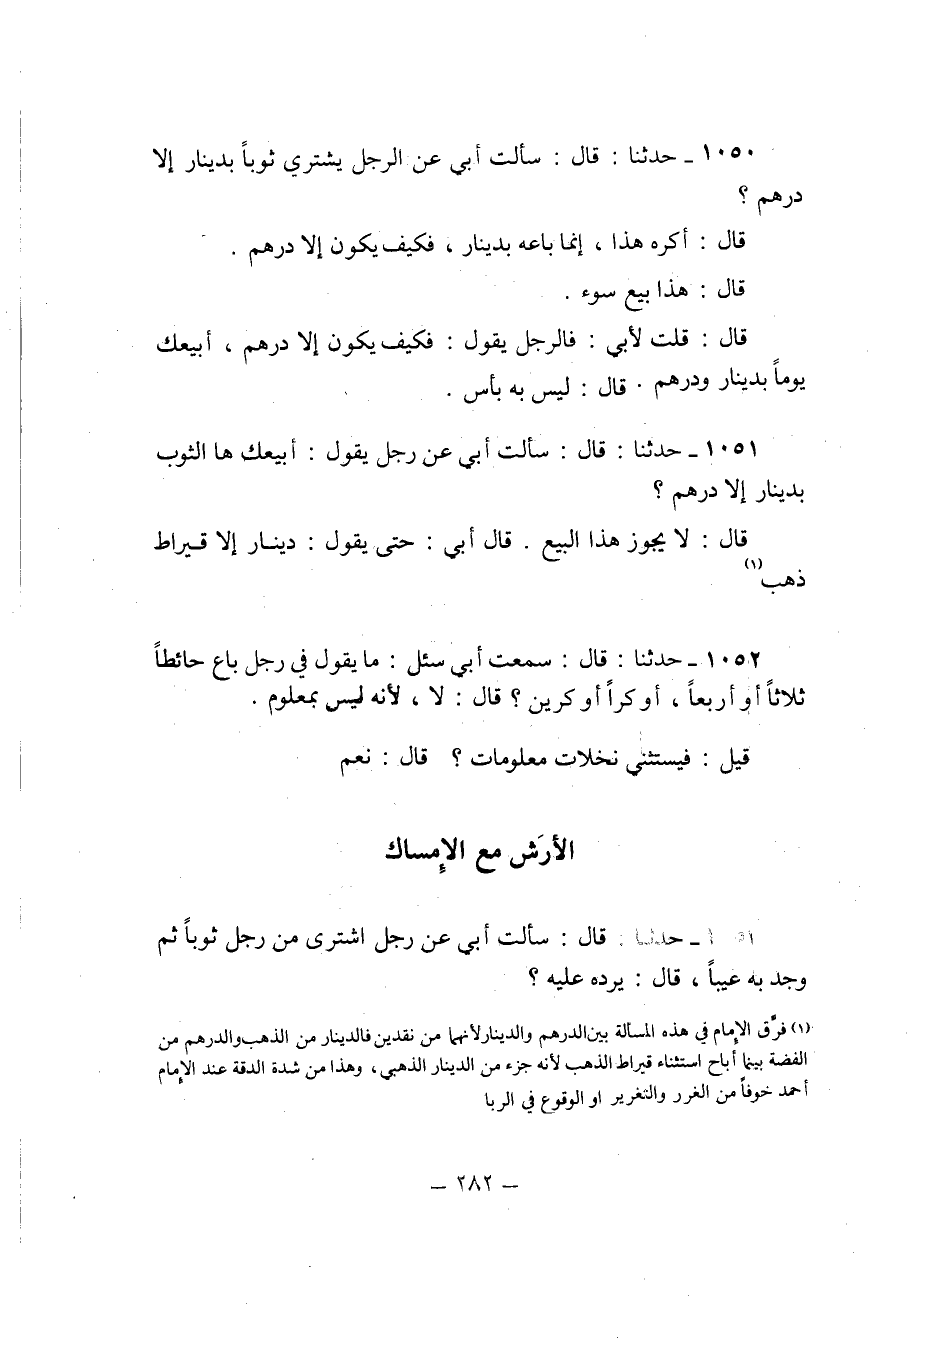 ١٠٥٠ ـ حدثنا : قال : سألت أبي عن الرجل يشتري ثوباً بدينار إلا
درهم ؟
قال : أكره هذا ، إنما باعه بدينار ، فكيف يكون إلا درهم .
قال : هذا بيع سوء .
قال : قلت لأبي : فالرجل يقول : فكيف يكون إلا درهم ، أبيعك
يوماً بدينار ودرهم . قال : ليس به بأس .
١٠٥١ ـ حدثنا : قال : سألت أبي عن رجل يقول : أبيعك ها الثوب
بدينار إلا درهم ؟
قال : لا يجوز هذا البيع . قال أبي : حتى يقول : دينار إلا قيراط
ذهب(١)
١٠٥٢ ـ حدثنا : قال : سمعت أبي سئل : ما يقول في رجل باع حائطاً
ثلاثاً أو أربعاً ، أو كراً أو كرين ؟ قال : لا ، لأنه ليس بمعلوم .
قيل : فيستثني نخلات معلومات ؟ قال : نعم
الأرَش مع الإمساك
ـ حدثنا : قال : سألت أبي عن رجل اشترى من رجل ثوباً ثم
وجد به عيباً ، قال : يرده عليه ؟
(١) فرَّق الإمام في هذه المسألة بين الدرهم والدينار لأنهما من نقدين فالدينار من الذهب والدرهم من
الفضة بينما أباح استثناء قيراط الذهب لأنه جزء من الدينار الذهبي، وهذا من شدة الدقة عند الإمام
أحمد خوفاً من الغرر والتغرير او الوقوع في الربا
— ٢٨٢ —